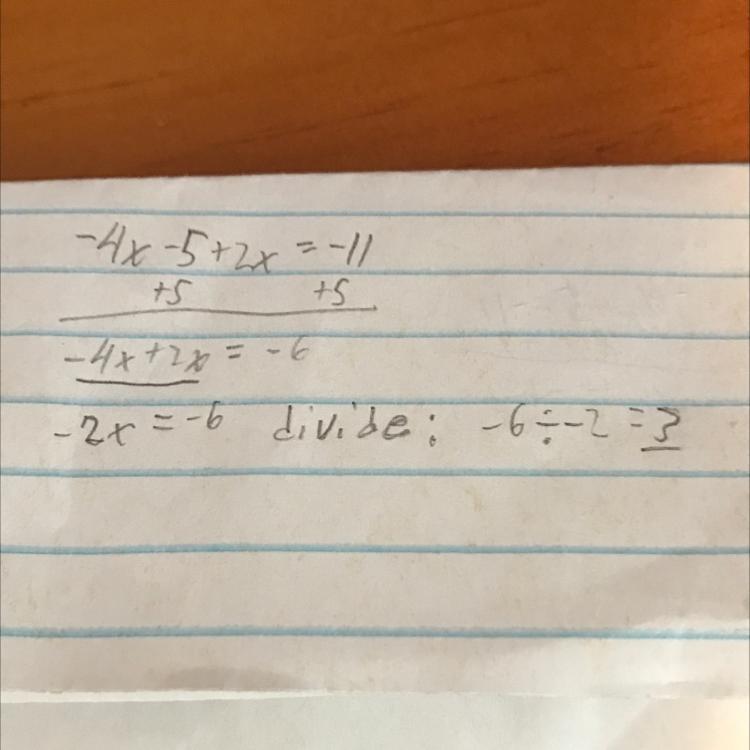 -4x -5 +2x = -11
+5 +5
-4x +2x = -6
-2x = -6 divide: -6 ÷ -2 = 3